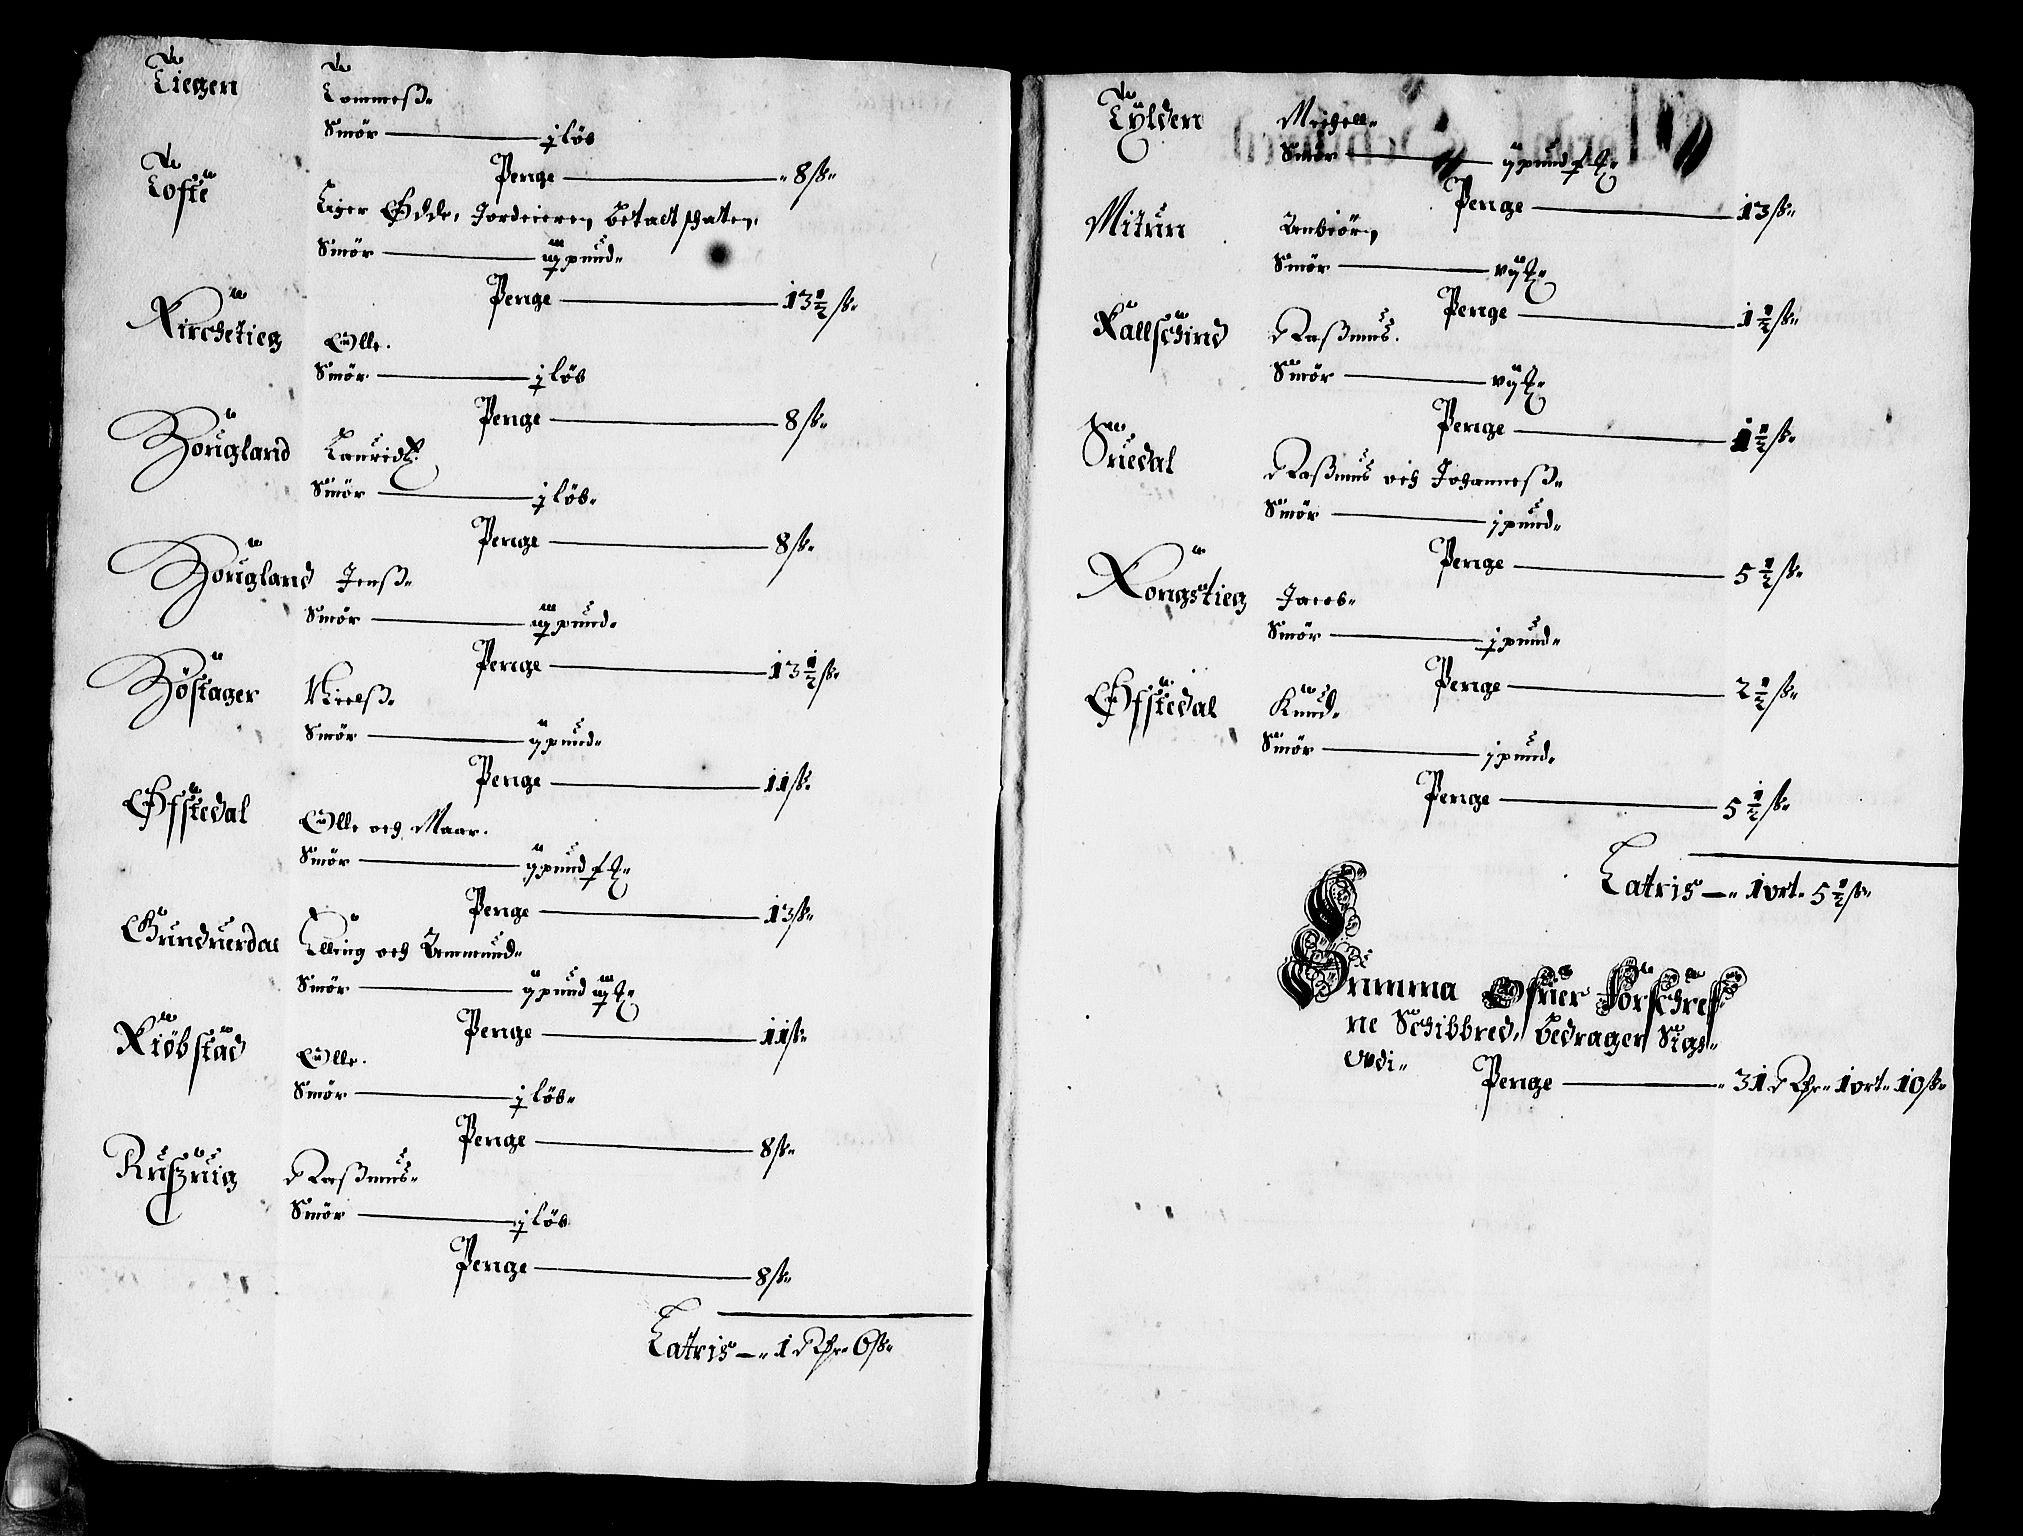 Tiegen Tommeß
Smör — j löb
Penge — 8 ß
Tofte Liger Ödde, Jordeieren betalt schaten
Smör — iij pund
Penge — 13½ ß
Kirchetieg Olle
Smör — j löb
Penge — 8 ß
Hougland Lauridtz
Smör — j löb
Penge — 8 ß
Hougland Jenß
Smör — iij pund
Penge — 13½ ß
Höstager Nielß
Smör — ij pund
Penge — 11 ß
Ofstedal Olle och Maar
Smör — ij pund
Penge — 13 ß
Gunduerdal Elling och Ammund
Smör — ij pund iij
Penge — 11 ß
Kiöbstad Olle
Smör — j löb
Penge — 8 ß
Rußuig Raßmus
Smör — j löb
Penge — 8 ß
Latris — 1 Rdr 6 ß
Tylden Michell
Smör — ij pund
Penge — 13 ß
Mitun Anbiörn
Smör — vij
Penge — 1½ ß
Kallschind Raßmus
Smör — vij
Penge — 1½ ß
Raßmus och Johanneß
Smör — j pund
Penge — 5½ ß
Kongstieg Jacob
Smör — j pund
Penge — 2½ ß
Ofstedal Knud
Smör — j pund
Penge — 5½ ß
Latris — 1 ort 5½ ß
Summa Ofuer Forschref
ne Schibbred, bedrager Sigs
Penge — 31 Rdr 1 ort 10 ß